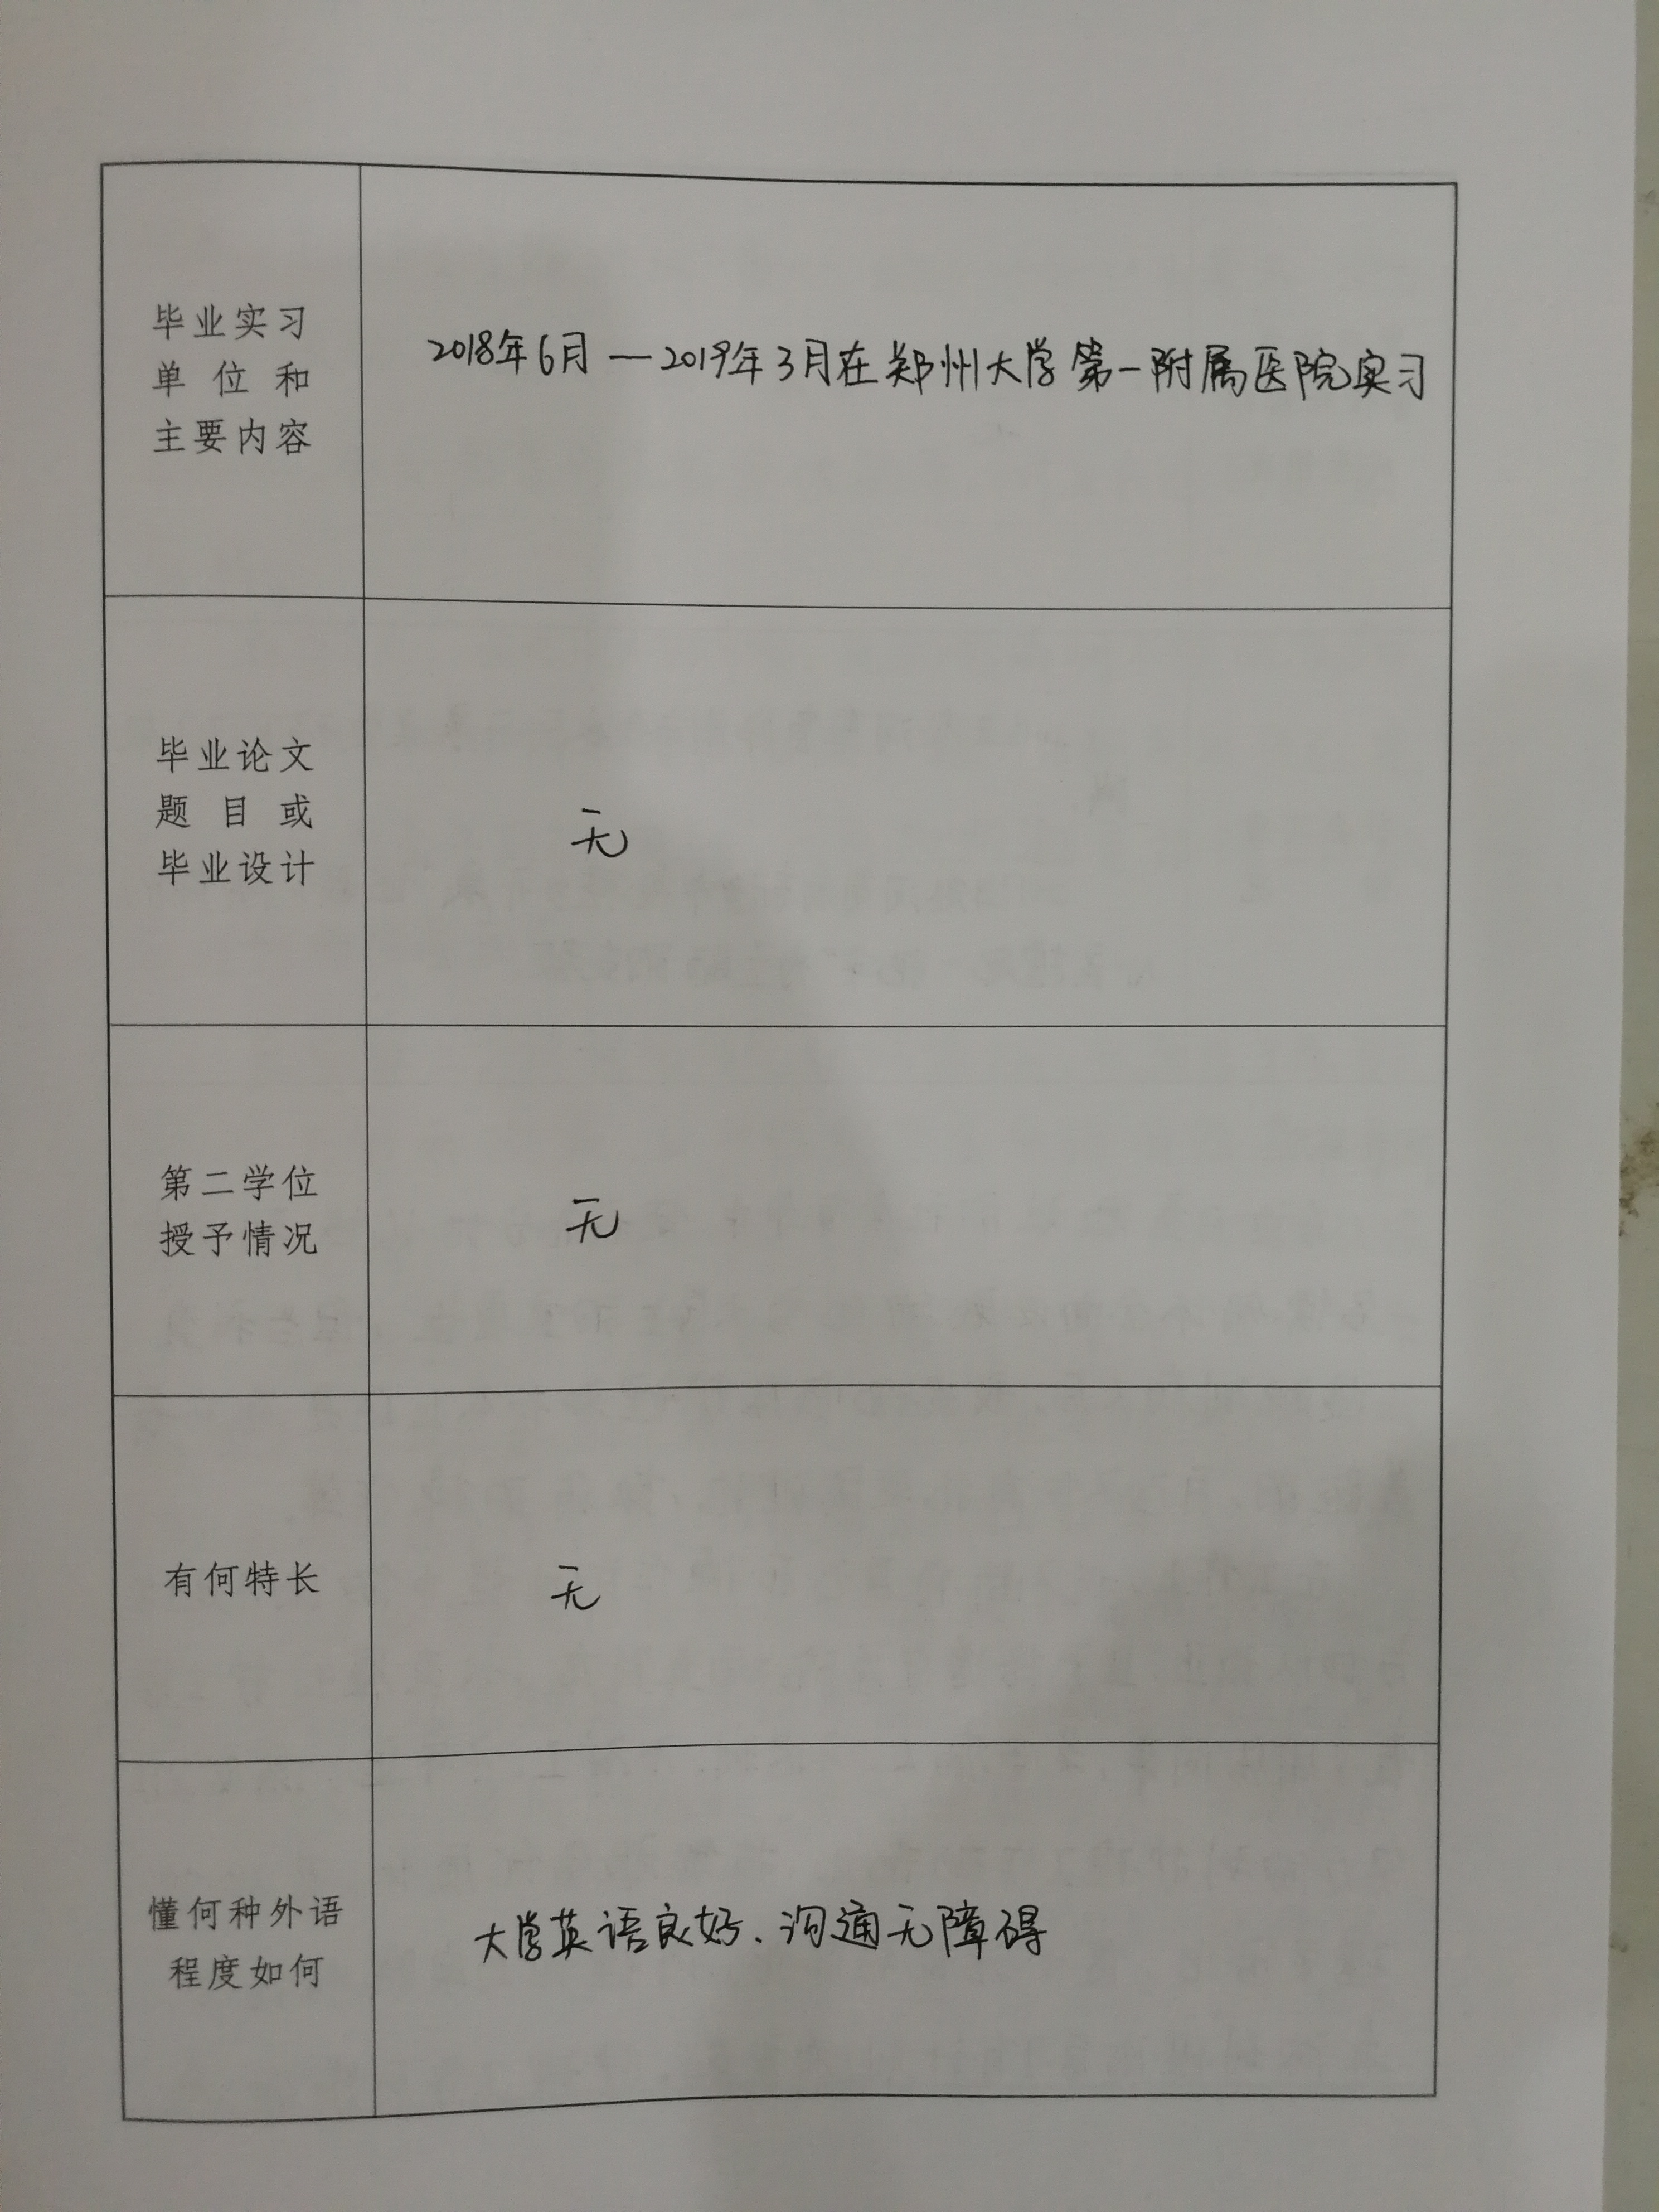 毕业实习
单位和
主要内容
2018年6月—2019年3月在郑州大学第一附属医院实习
毕业论文
题目或
毕业设计
无
第二学位
授予情况
无
有何特长
无
懂何种外语
程度如何
大学英语良好、沟通无障碍